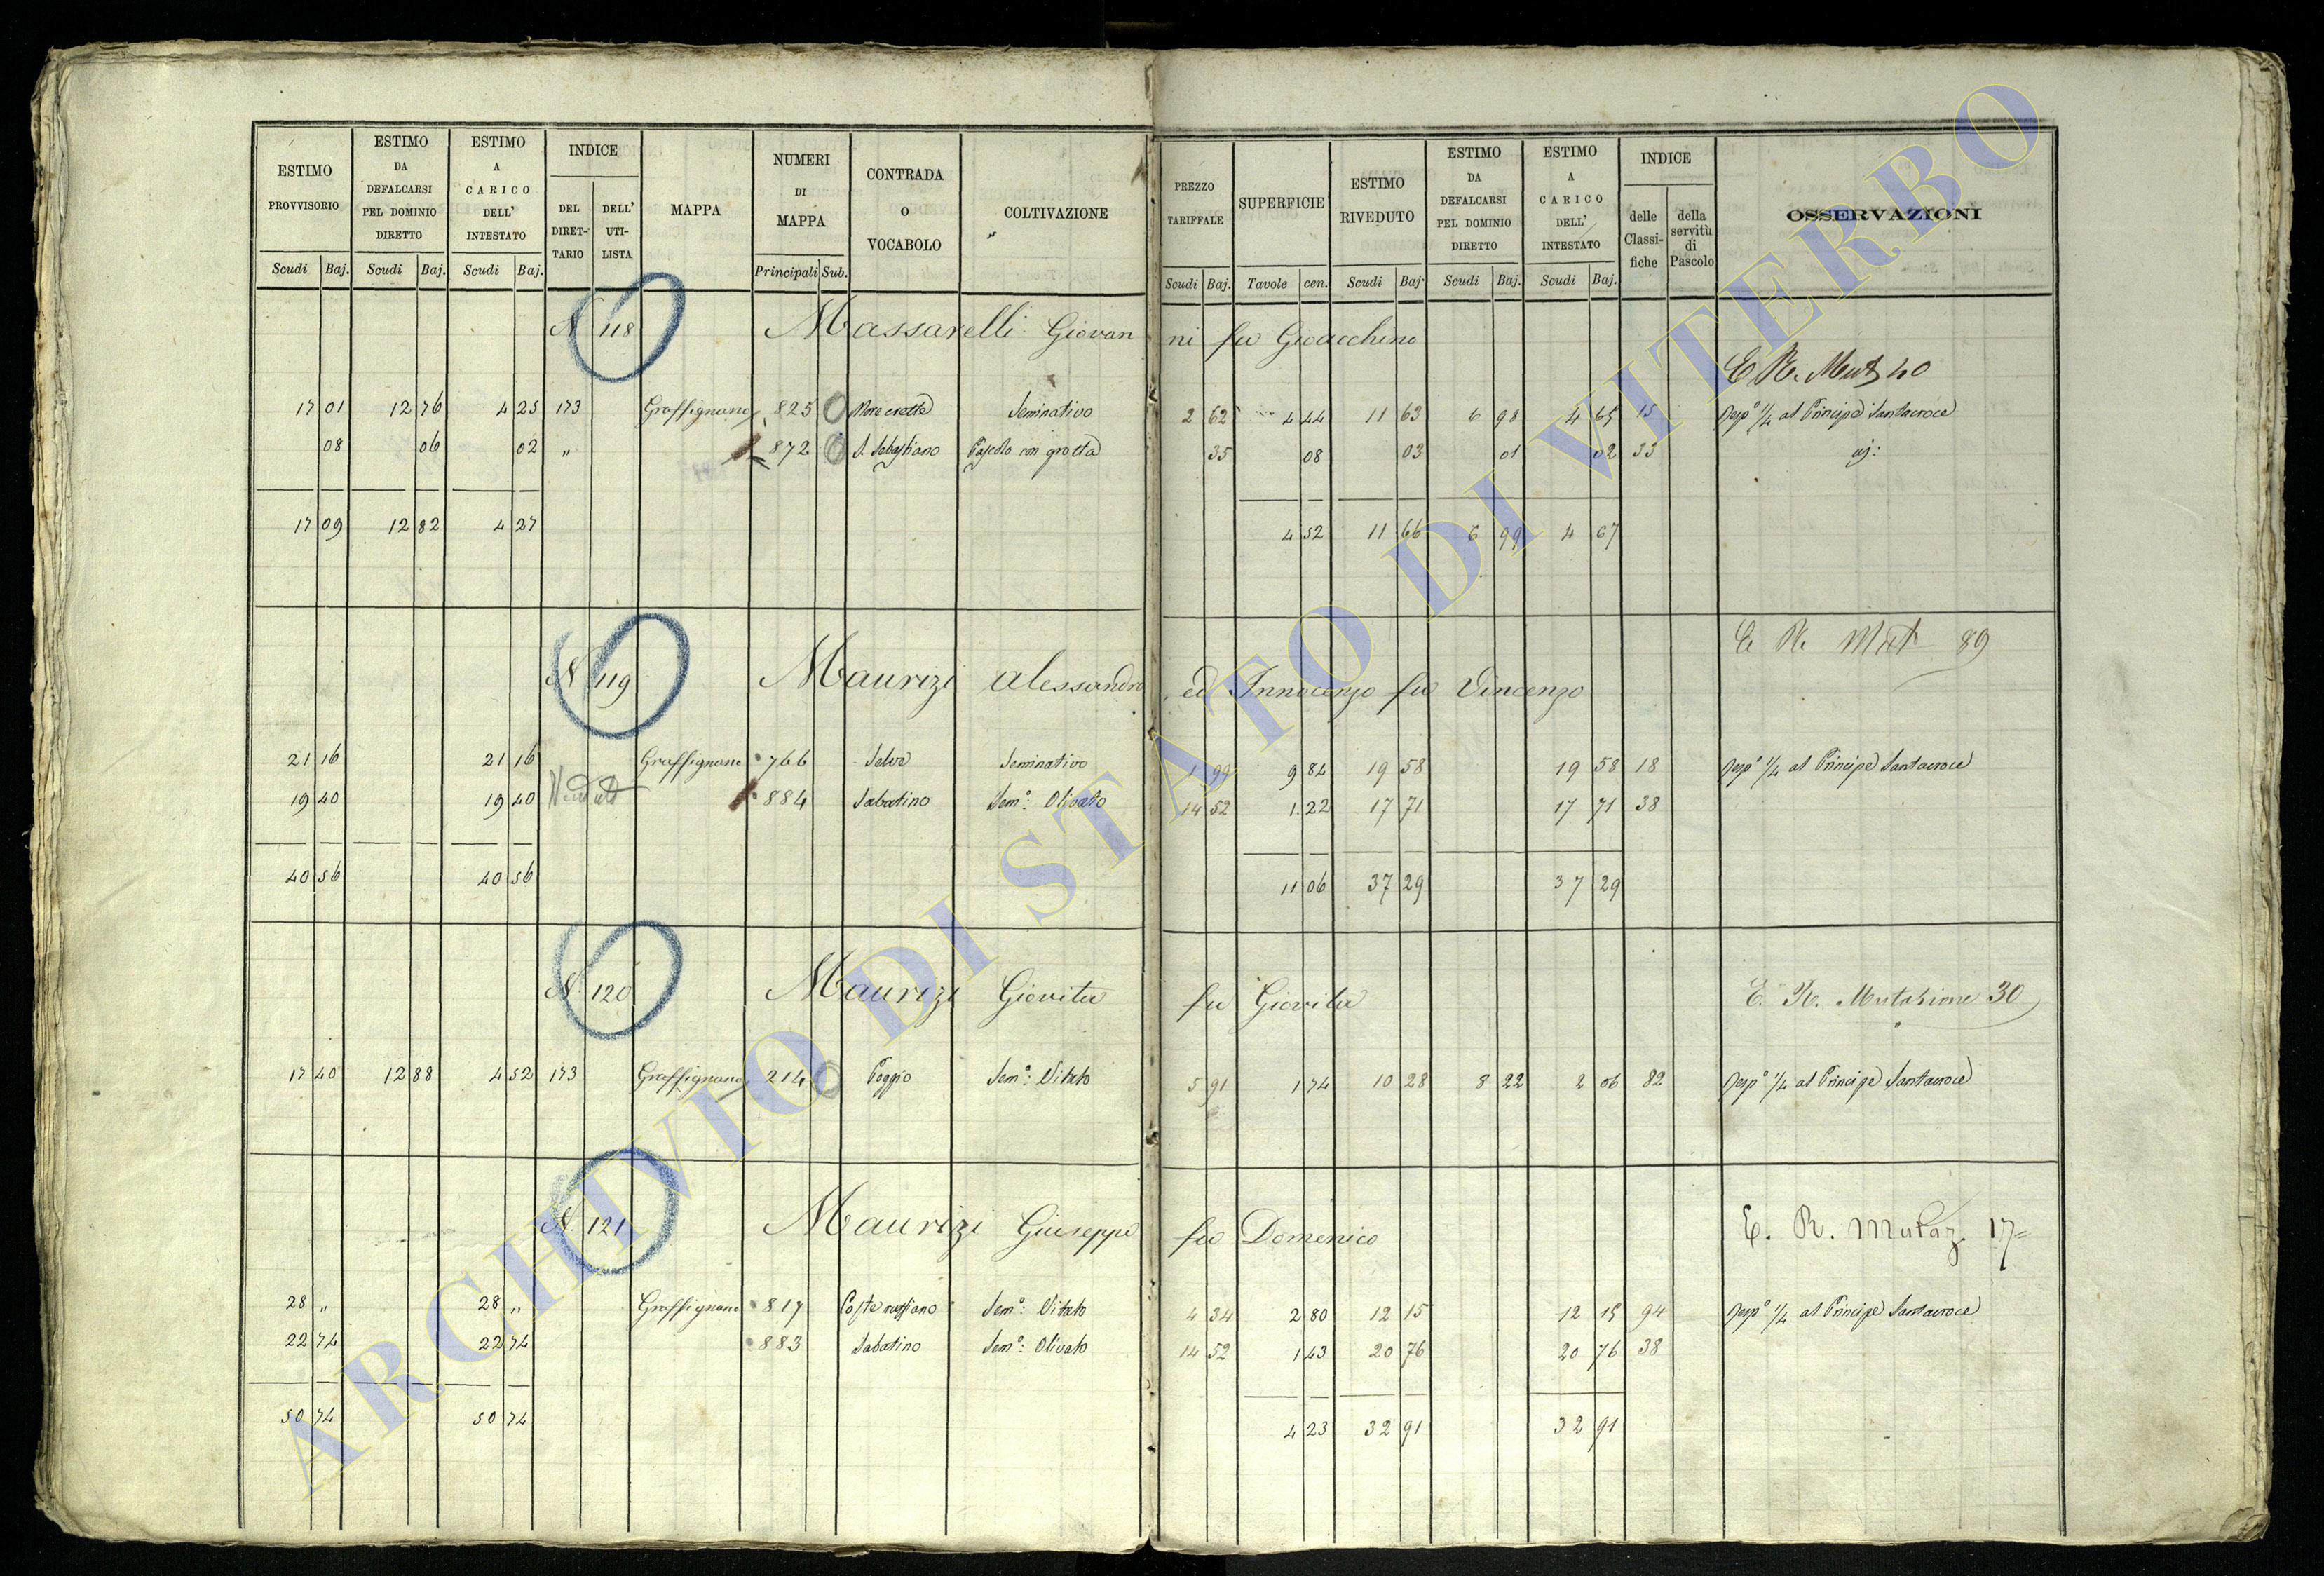 ESTIMO PROVVISORIO | ESTIMO DA DEFALCARSI PEL DOMINIO DIRETTO | ESTIMO A CARICO DELL' INTESTATO | INDICE | MAPPA | NUMERI DI MAPPA | CONTRADA O VOCABOLO | COLTIVAZIONE | PREZZO TARIFFALE | SUPERFICIE | ESTIMO RIVEDUTO | ESTIMO DA DEFALCARSI PEL DOMINIO DIRETTO | ESTIMO A CARICO DELL' INTESTATO | INDICE | OSSERVAZIONI
DEL DIRETTARIO | DELL' UTILISTA | delle Classifiche | della servitù di Pascolo
Scudi | Baj. | Scudi | Baj. | Scudi | Baj. | Principali | Sub. | Scudi | Baj. | Tavole | cen. | Scudi | Baj. | Scudi | Baj. | Scudi | Baj.
N 118 Massarelli Giovanni fu Gioacchino
E R. Mut 40
17 01 | 12 76 | 4 25 | 173 | Graffignano | 825 | Seminativo | 2 62 | 4 44 | 11 63 | 6 98 | 4 65 | 15 | Resp.o 1/4 al Principe Santacroce
08 | 06 | 02 | " | 872 | S. Sebastiano | Pascolo con grotta | 35 | 08 | 03 | 01 | 02 | 33
17 09 | 12 82 | 4 27 | 4 52 | 11 66 | 6 99 | 4 67
E R Mut 89
N 119 Maurizi Alessandro ed Innocenzo fu Vincenzo
21 16 | 21 16 | Graffignano | 766 | Selve | Seminativo | 1 99 | 9 84 | 19 58 | 19 58 | 18 | Resp.o 1/4 al Principe Santacroce
19 40 | 19 40 | 884 | Sabatino | Sem.o: Olivato | 14 52 | 1 22 | 17 71 | 17 71 | 38
40 56 | 40 56 | 11 06 | 37 29 | 37 29
N. 120 Maurizi Giovita fu Giovita
E. R. Mutazione 30
17 40 | 12 88 | 4 52 | 173 | Graffignano | 214 | Poggio | Sem.o: Vitato | 5 91 | 1 74 | 10 28 | 8 22 | 2 06 | 82 | Resp.o 1/4 al Principe Santacroce
N. 121 Maurizi Giuseppe fu Domenico
E. R. Mutaz. 17
28 " | 28 " | Graffignano | 817 | Sem.o: Vitato | 4 34 | 2 80 | 12 15 | 12 15 | 94 | Resp.o 1/4 al Principe Santacroce
22 74 | 22 74 | 883 | Sabatino | Sem.o: Olivato | 14 52 | 1 43 | 20 76 | 20 76 | 38
50 74 | 50 74 | 4 23 | 32 91 | 32 91
ARCHIVIO DI STATO DI VITERBO